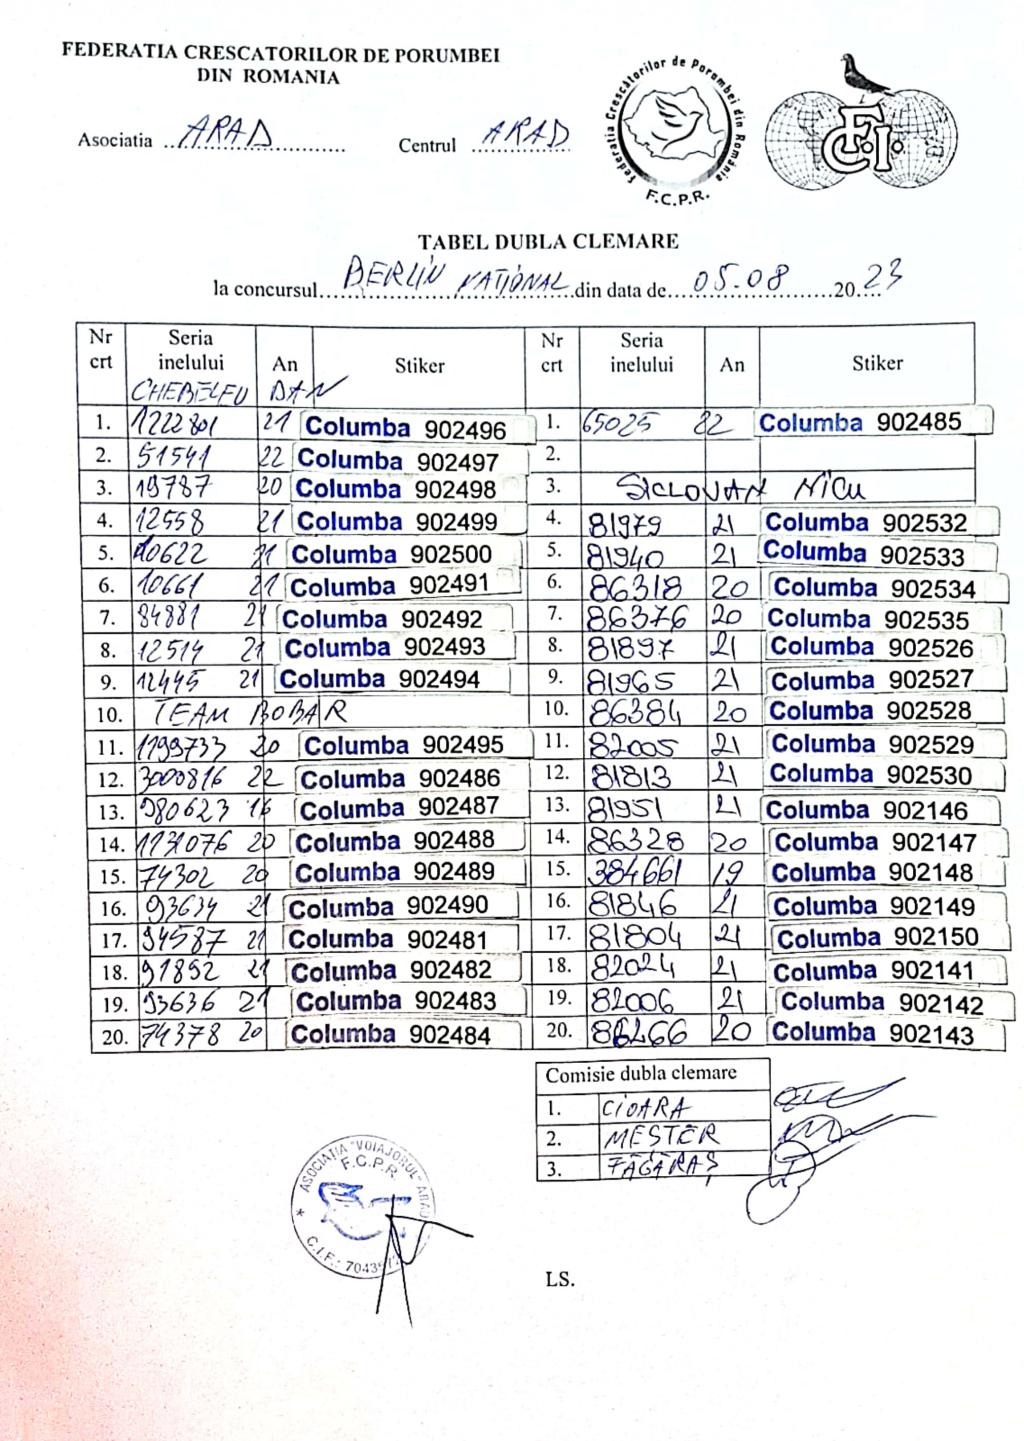 FEDERATIA CRESCATORILOR DE PORUMBEI
DIN ROMANIA
Asociatia ARAD Centrul ARAD
Federatia Crescătorilor de Porumbei din România
F.C.P.R.
F.C.I.
TABEL DUBLA CLEMARE
la concursul BERLIN NAȚIONAL din data de 05.08 2023
Nr crt Seria inelului An Stiker Nr crt Seria inelului An Stiker
CHEBELEU DAN
1. 1222801 21 Columba 902496 1. 65025 22 Columba 902485
2. 51541 22 Columba 902497 2.
3. 19787 20 Columba 902498 3. SICLOVAN NICU
4. 12558 21 Columba 902499 4. 81979 21 Columba 902532
5. 10622 21 Columba 902500 5. 81940 21 Columba 902533
6. 10661 21 Columba 902491 6. 86318 20 Columba 902534
7. 84881 21 Columba 902492 7. 86376 20 Columba 902535
8. 12514 21 Columba 902493 8. 81897 21 Columba 902526
9. 12445 21 Columba 902494 9. 81965 21 Columba 902527
10. TEAM BOBAR 10. 86384 20 Columba 902528
11. 1199733 20 Columba 902495 11. 82005 21 Columba 902529
12. 3000816 22 Columba 902486 12. 81813 21 Columba 902530
13. 980623 16 Columba 902487 13. 81951 21 Columba 902146
14. 1131076 20 Columba 902488 14. 86328 20 Columba 902147
15. 74302 20 Columba 902489 15. 384661 19 Columba 902148
16. 93634 21 Columba 902490 16. 81846 21 Columba 902149
17. 94587 21 Columba 902481 17. 81804 21 Columba 902150
18. 91852 21 Columba 902482 18. 82024 21 Columba 902141
19. 93636 21 Columba 902483 19. 82006 21 Columba 902142
20. 74378 20 Columba 902484 20. 86266 20 Columba 902143
Comisie dubla clemare
1. CIOARA
2. MEȘTER
3. FĂGĂRAȘ
ASOCIATIA "VOIAJORUL" ARAD
F.C.P.R.
C.I.F.:
LS.